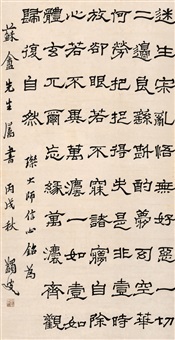 迷生寂亂悟無好惡一切
二邊良由斟酌夢幻空華
何勞把捉得失是非壹時
放卻眼若不寐諸夢自除
心若不異萬灋壹如壹如
體玄兀爾忘緣萬灋齊觀
歸復自然
璨大師信心銘為
蘇盦先生屬書 丙戌秋 蠲叟